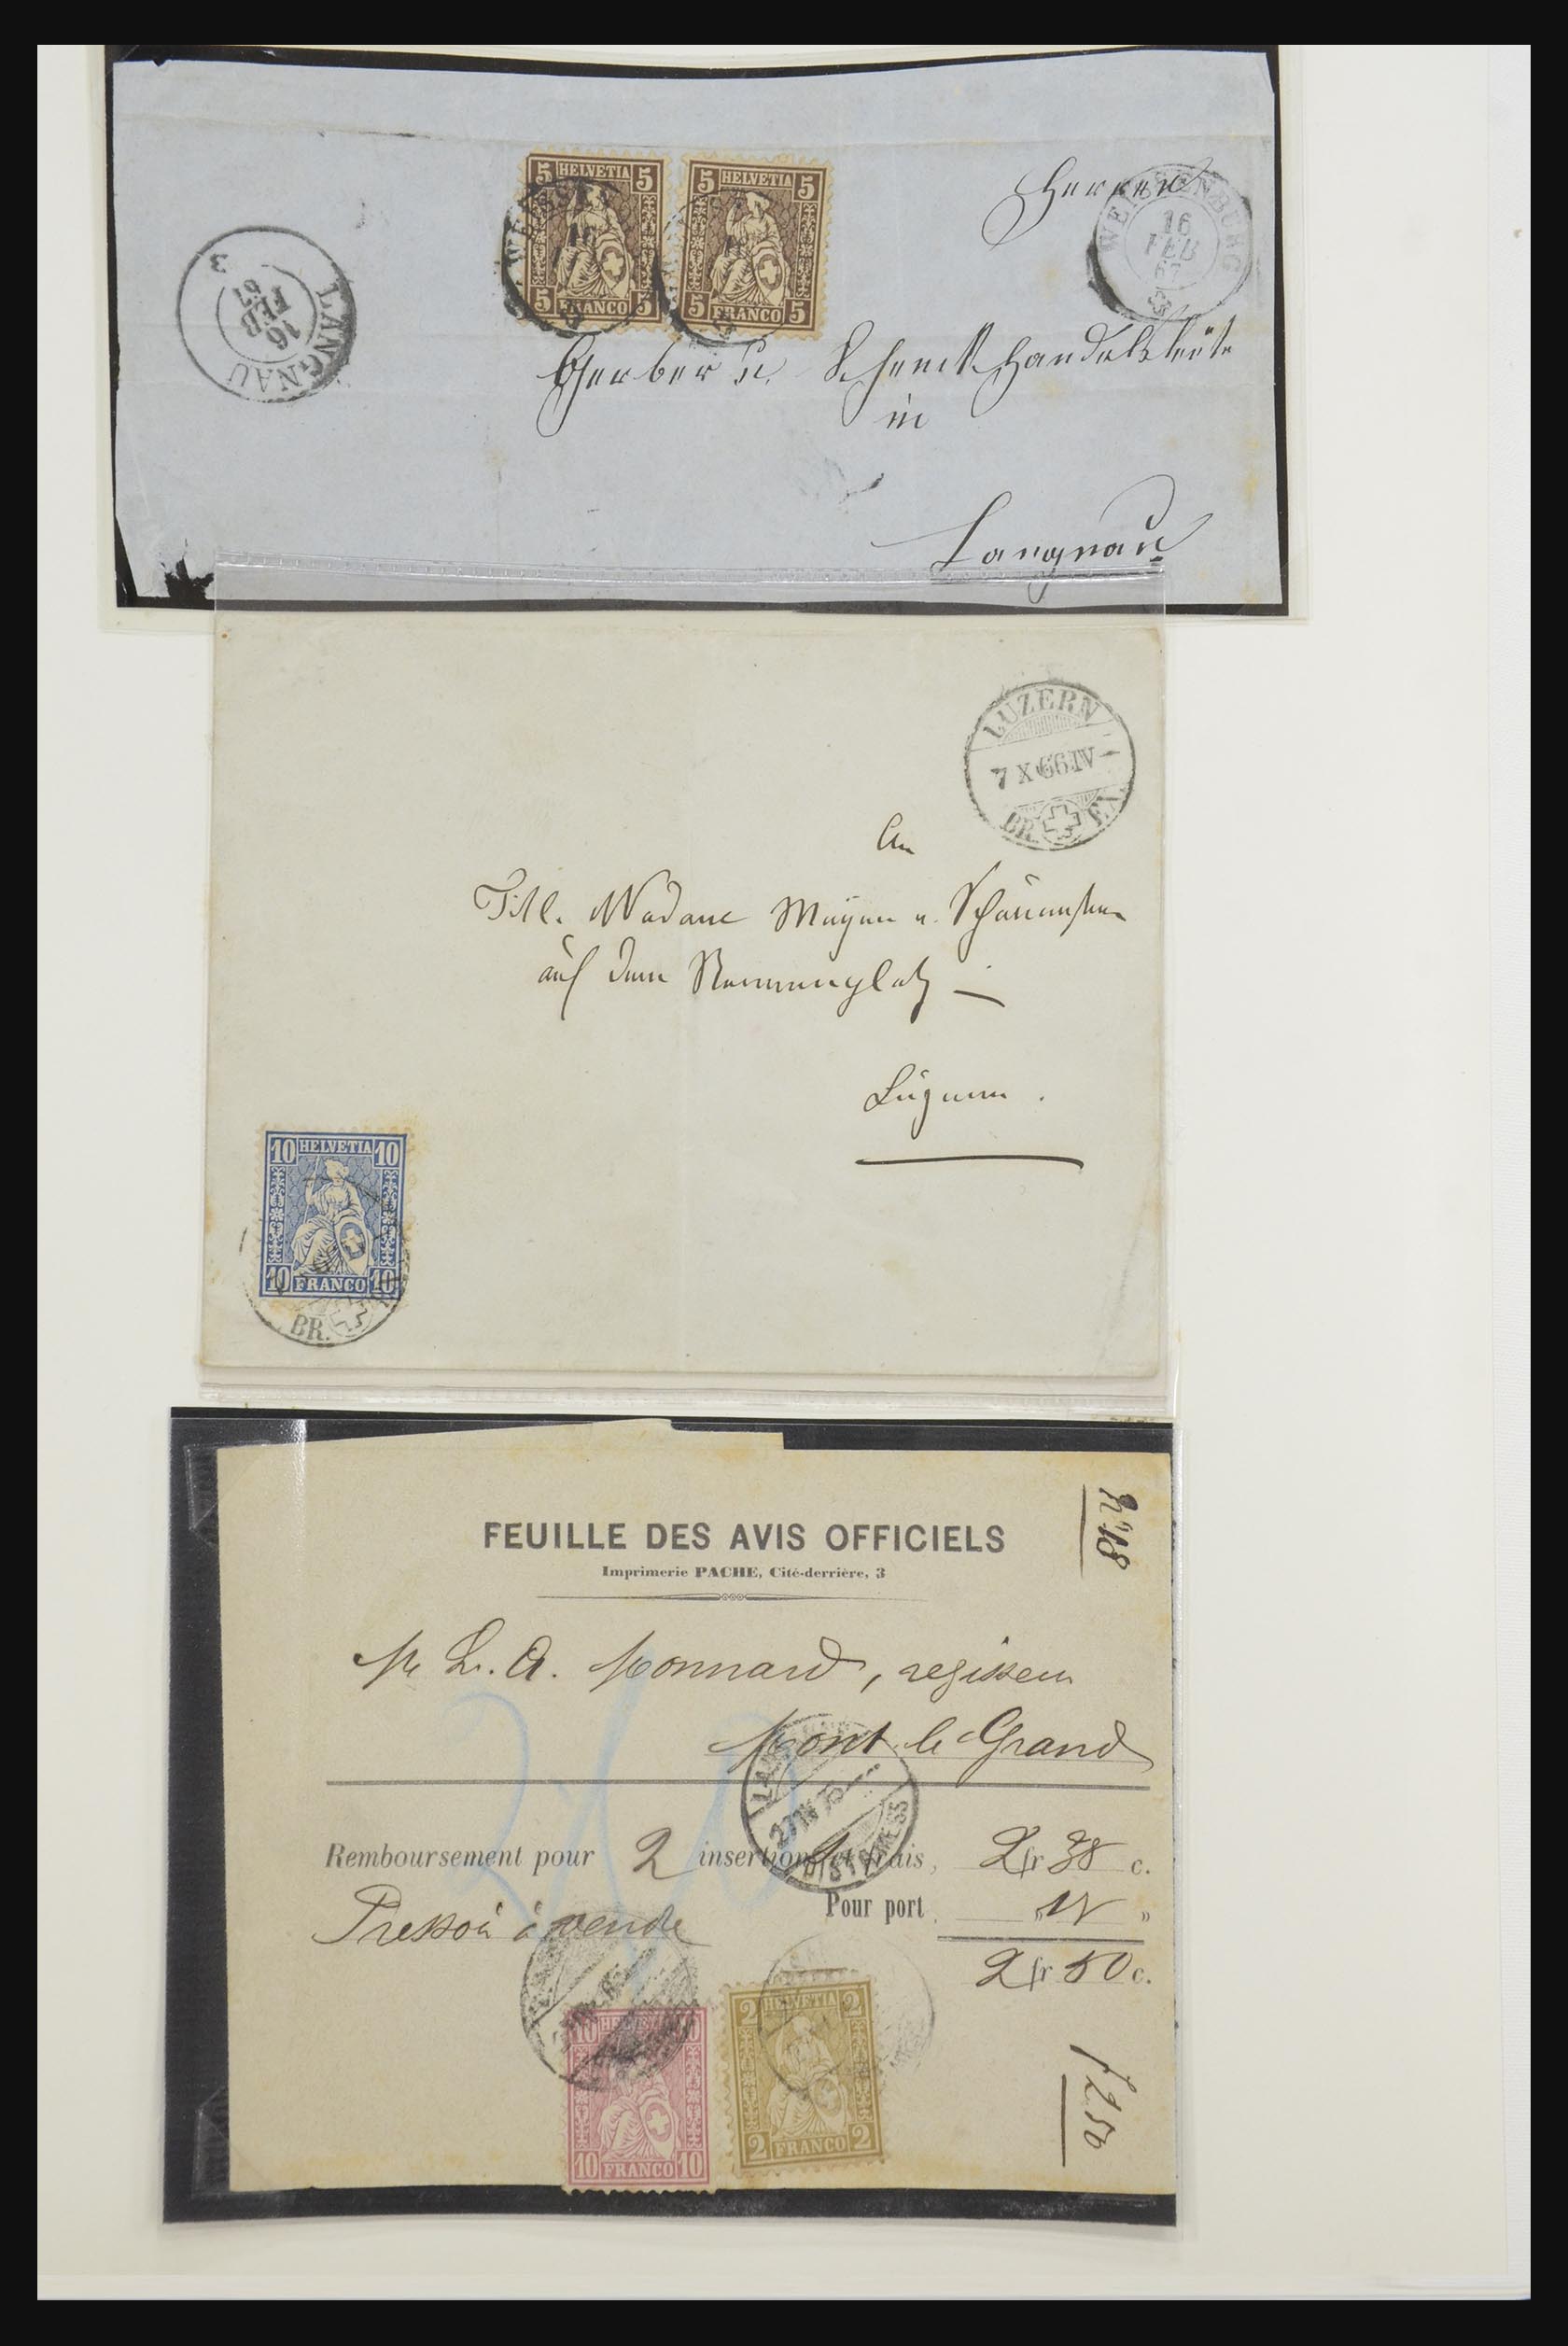 5 HELVETIA 5
5 FRANCO 5
5 HELVETIA 5
5 FRANCO 5
Herren
WEISSENBURG
16
FEB
67
LANGNAU
16
FEB
67
3
Gerber u. Schenk Handelsleute
in
Langnau
LUZERN
7 X 66 IV
BR. F.A.
An
Titl. Madame
auf dem
10 HELVETIA 10
10 FRANCO 10
BR.
FEUILLE DES AVIS OFFICIELS
Imprimerie PACHE, Cité-derrière, 3
Mr L. A. Monnard, regisseur
Mont le Grand
Remboursement pour 2 insertions et frais, 2 fr 38 c.
Pressoir à vendre
Pour port „ 12 „
2 fr 50 c.
10 HELVETIA 10
10 FRANCO 10
2 HELVETIA 2
2 FRANCO 2
f 2.50